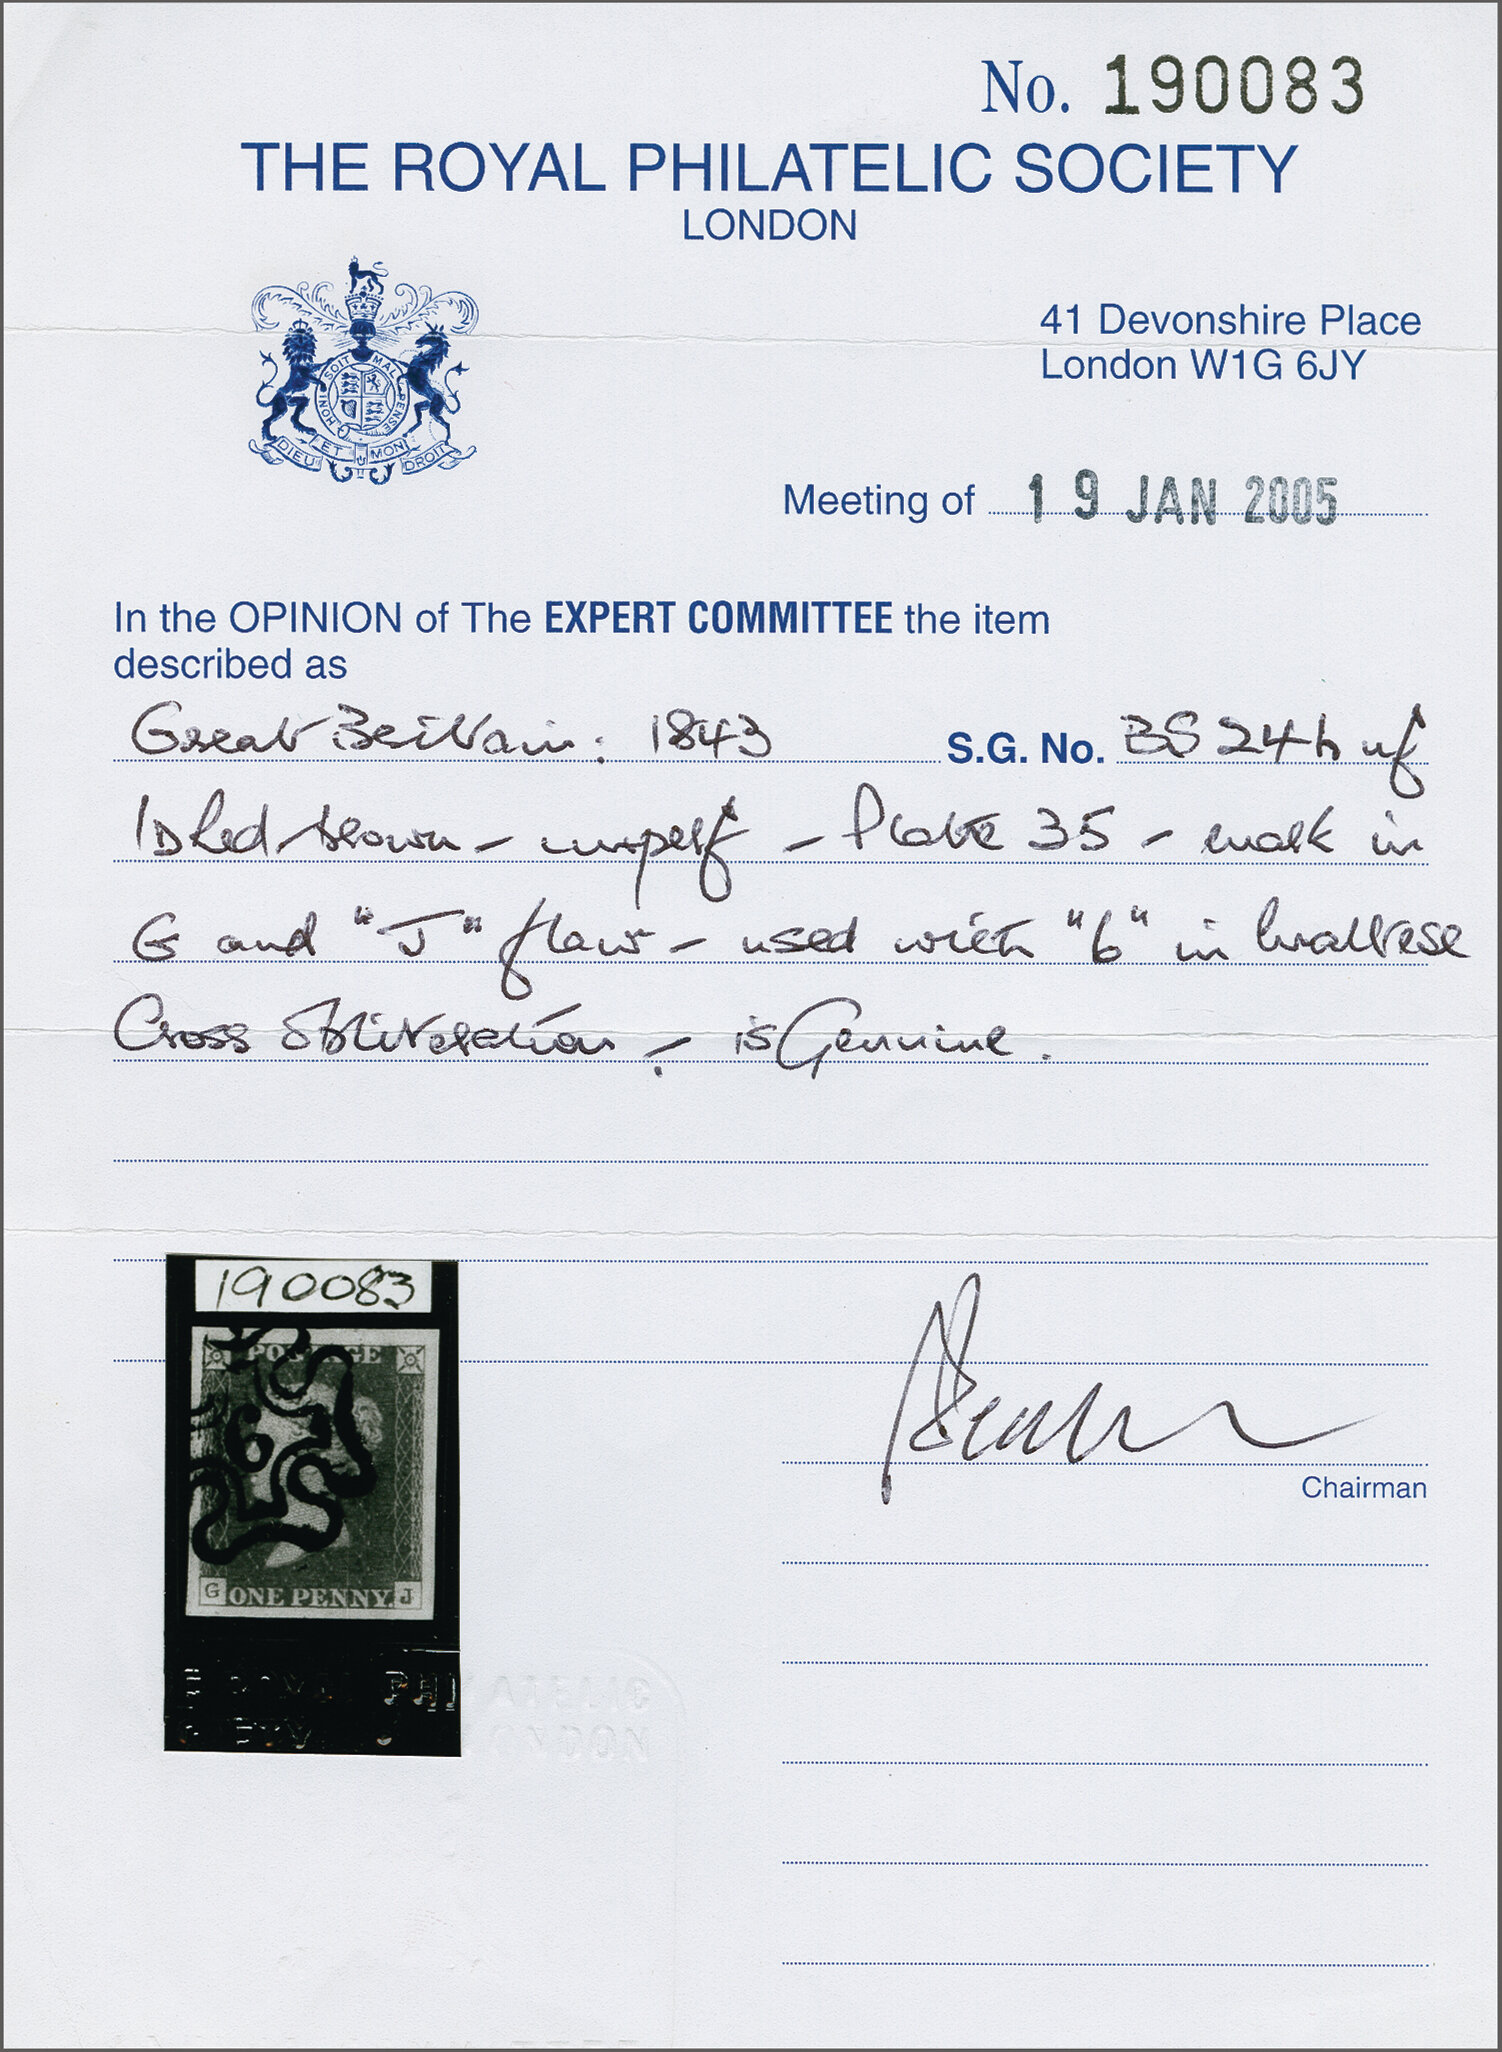 No. 190083
THE ROYAL PHILATELIC SOCIETY
LONDON
HONI SOIT MAL PENSE
DIEU ET MON DROIT
41 Devonshire Place
London W1G 6JY
Meeting of 19 JAN 2005
In the OPINION of The EXPERT COMMITTEE the item
described as
Great Britain: 1843 S.G. No. BS24h uf
1D Red-brown - imperf - Plate 35 - mark in
G and "J" flaw - used with "6" in Maltese
Cross obliteration - is Genuine.
190083
POSTAGE
6
G ONE PENNY. J
Chairman